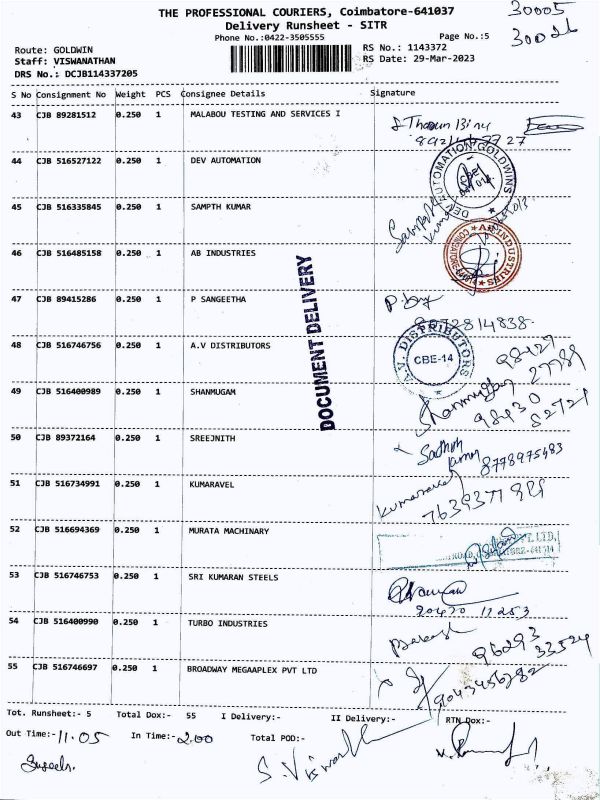 THE PROFESSIONAL COURIERS, Coimbatore-641037
30005
Delivery Runsheet - SITR
30026
Phone No.:0422-3505555
Page No.:5
Route: GOLDWIN
RS No.: 1143372
Staff: VISWANATHAN
RS Date: 29-Mar-2023
DRS No.: DCJB114337205
S No Consignment No Weight PCS Consignee Details Signature
43 CJB 89281512 0.250 1 MALABOU TESTING AND SERVICES I
44 CJB 516527122 0.250 1 DEV AUTOMATION
DEV AUTOMATION GOLDWINS
45 CJB 516335845 0.250 1 SAMPTH KUMAR
46 CJB 516485158 0.250 1 AB INDUSTRIES
INDUSTRIES
DOCUMENT DELIVERY
47 CJB 89415286 0.250 1 P SANGEETHA
48 CJB 516746756 0.250 1 A.V DISTRIBUTORS
A.V. DISTRIBUTORS
CBE-14
98427
27789
49 CJB 516400989 0.250 1 SHANMUGAM
Shanmugam
98430
82721
50 CJB 89372164 0.250 1 SREEJNITH
8778975483
51 CJB 516734991 0.250 1 KUMARAVEL
Kumaravel
52 CJB 516694369 0.250 1 MURATA MACHINARY
53 CJB 516746753 0.250 1 SRI KUMARAN STEELS
54 CJB 516400990 0.250 1 TURBO INDUSTRIES
96293
33524
55 CJB 516746697 0.250 1 BROADWAY MEGAAPLEX PVT LTD
9043456782
Tot. Runsheet:- 5 Total Dox:- 55 I Delivery:- II Delivery:- RTN Dox:-
Out Time:- 11.05 In Time:- 2.00 Total POD:-